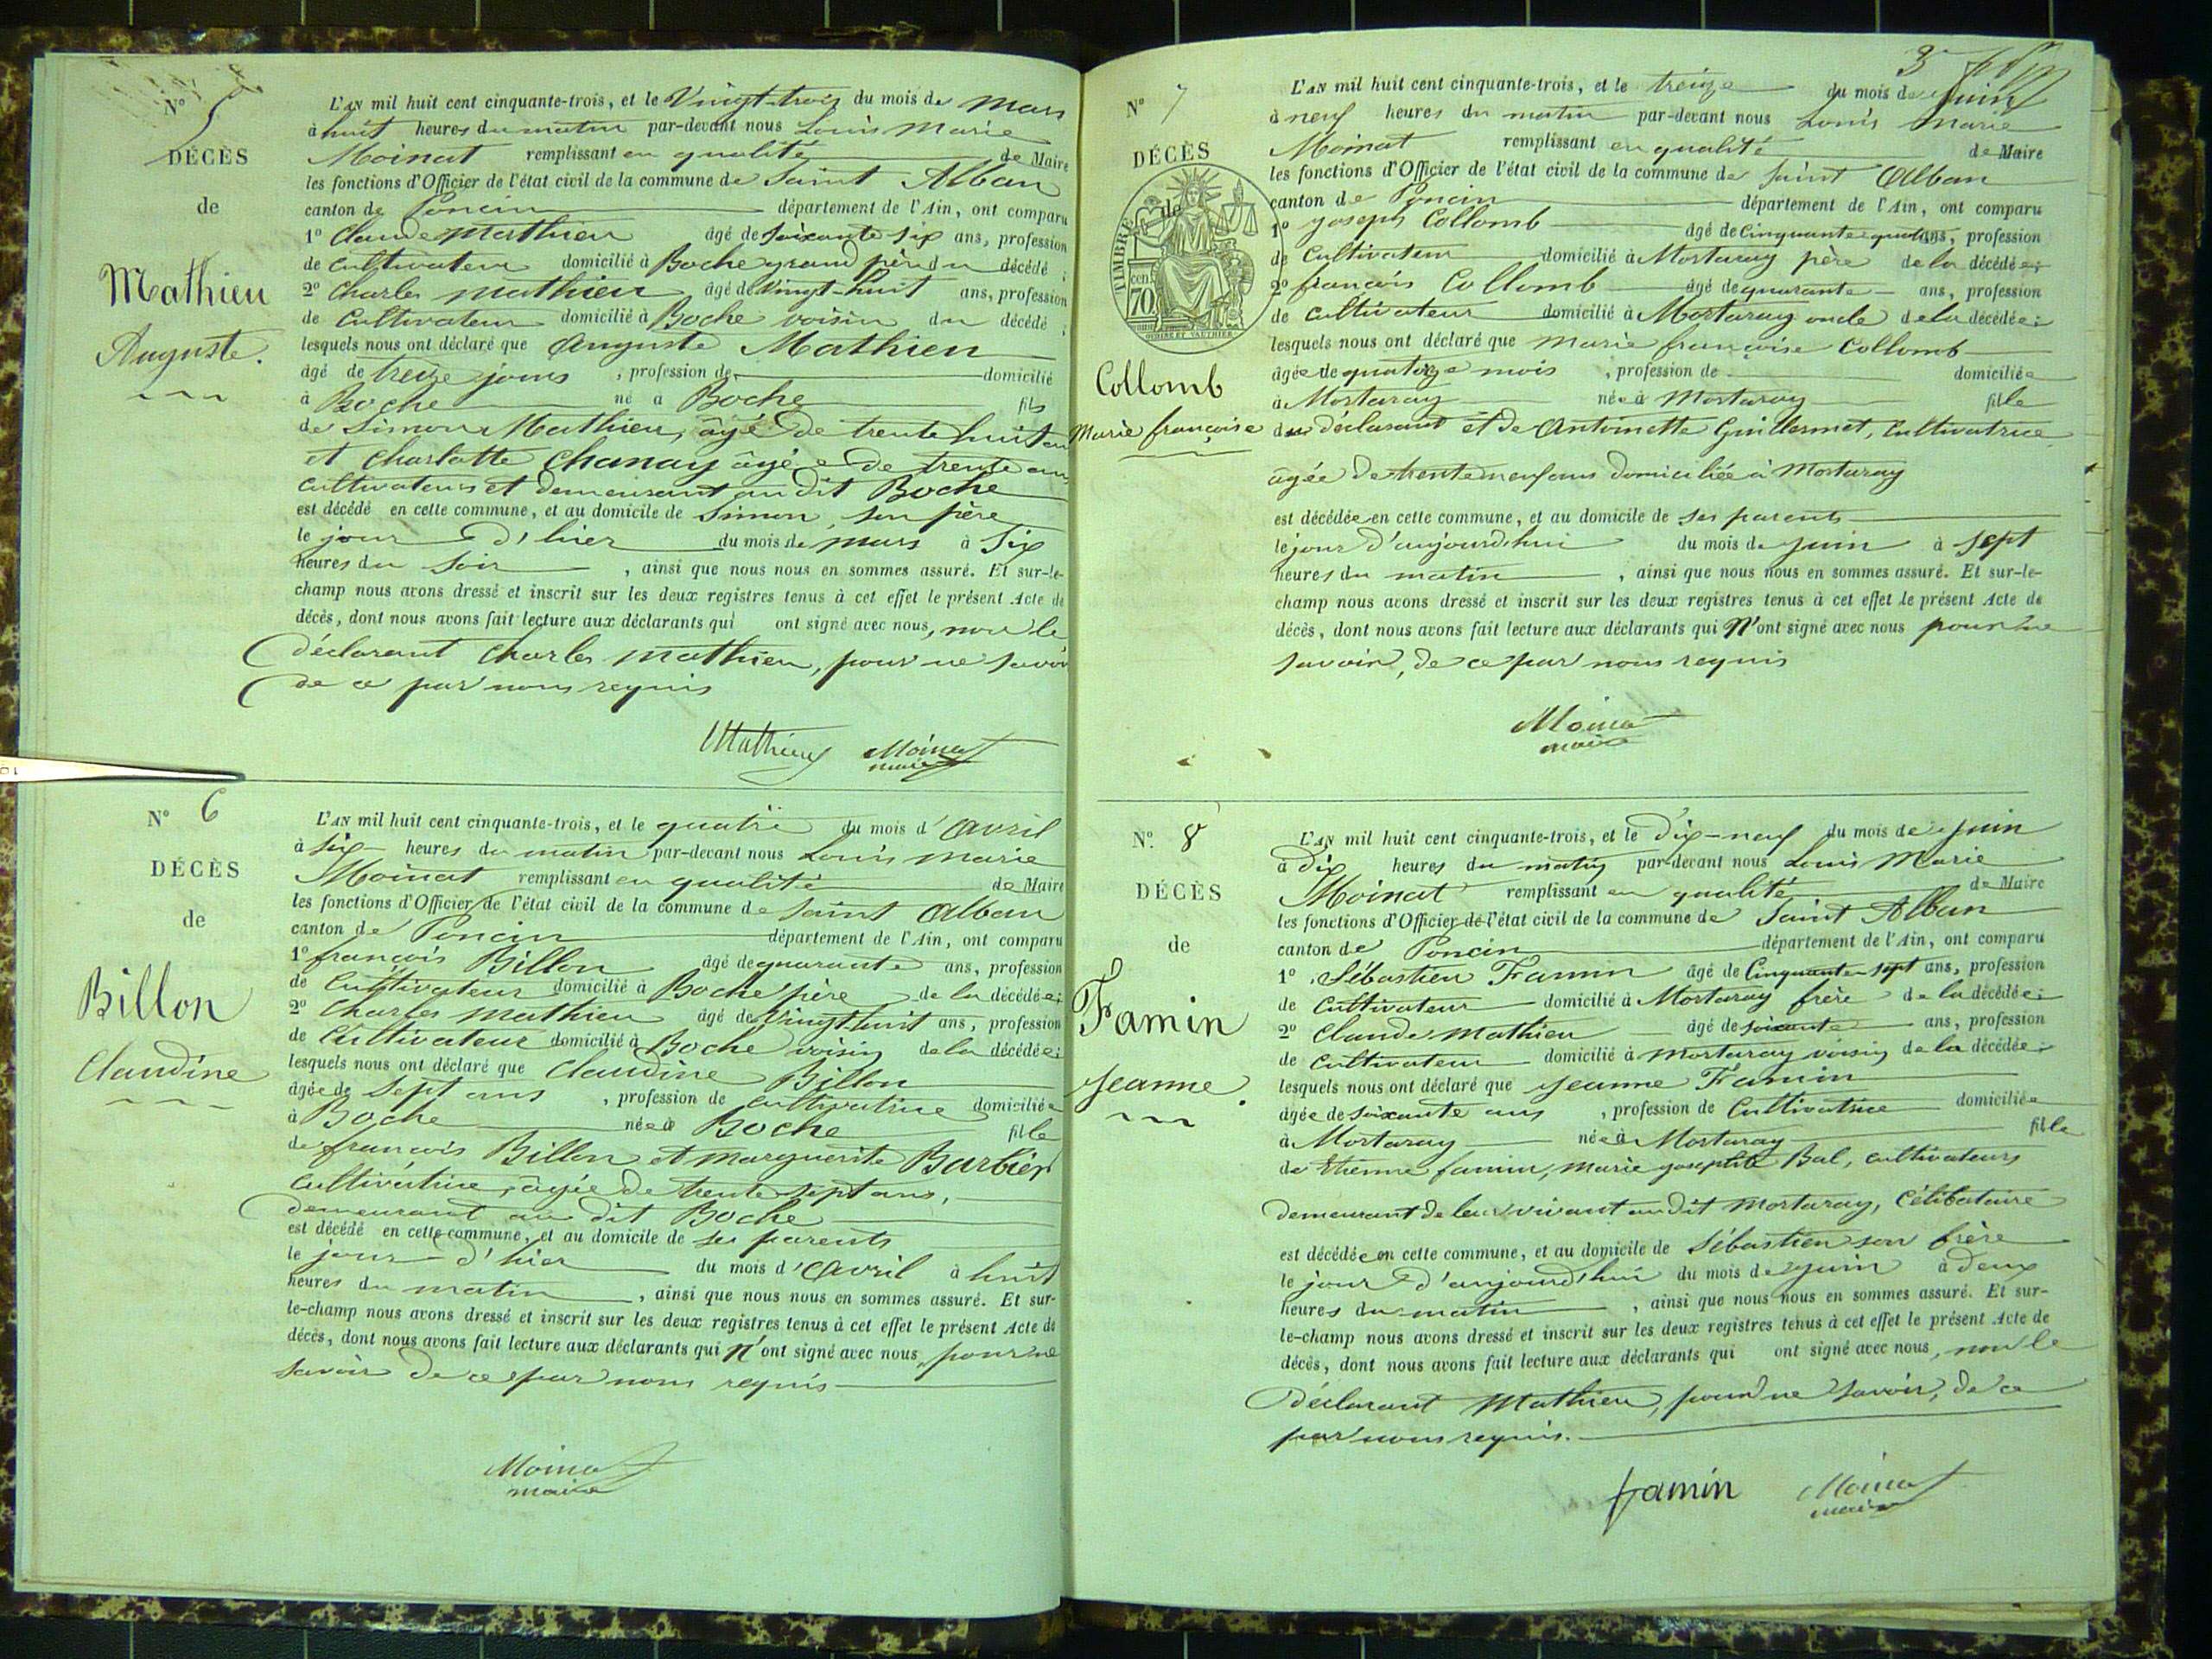 N° 5
DÉCÈS
de
Mathieu
Auguste.
L'AN mil huit cent cinquante-trois, et le Vingt-trois du mois de Mars
à huit heures du matin par-devant nous Louis Marie
Moinat remplissant en qualité de Maire
les fonctions d'Officier de l'état civil de la commune de Saint Alban
canton de Poncin département de l'Ain, ont comparu
1° Claude Mathieu âgé de soixante six ans, profession
de Cultivateur domicilié à Boche grand père du décédé ;
2° Charles Mathieu âgé de Vingt-huit ans, profession
de Cultivateur domicilié à Boche voisin du décédé ;
lesquels nous ont déclaré que Auguste Mathieu
âgé de treize jours , profession de domicilié
à Boche né à Boche fils
de Simon Mathieu, âgé de trente huit ans
et Charlotte Chanay âgée de trente ans
cultivateurs et demeurant au dit Boche
est décédé en cette commune, et au domicile de Simon, son père
le jour d'hier du mois de mars à Six
heures du soir , ainsi que nous nous en sommes assuré. Et sur-le-
champ nous avons dressé et inscrit sur les deux registres tenus à cet effet le présent Acte de
décès, dont nous avons fait lecture aux déclarants qui ont signé avec nous, non le
déclarant Charles Mathieu, pour ne savoir
de ce par nous requis
Mathieu Moinat
maire
N° 6
DÉCÈS
de
Billon
Claudine
L'AN mil huit cent cinquante-trois, et le quatre du mois d'Avril
à six heures du matin par-devant nous Louis Marie
Moinat remplissant en qualité de Maire
les fonctions d'Officier de l'état civil de la commune de Saint Alban
canton de Poncin département de l'Ain, ont comparu
1° françois Billon âgé de quarante ans, profession
de Cultivateur domicilié à Boche père de la décédée ;
2° Charles Mathieu âgé de Vingt huit ans, profession
de Cultivateur domicilié à Boche voisin de la décédée ;
lesquels nous ont déclaré que Claudine Billon
âgée de Sept ans , profession de cultivatrice domiciliée
à Boche née à Boche fille
de françois Billon et Marguerite Barbier
Cultivatrice, âgée de trente sept ans,
demeurant au dit Boche
est décédé en cette commune, et au domicile de ses parents
le jour d'hier du mois d'Avril à huit
heures du matin , ainsi que nous nous en sommes assuré. Et sur-
le-champ nous avons dressé et inscrit sur les deux registres tenus à cet effet le présent Acte de
décès, dont nous avons fait lecture aux déclarants qui N'ont signé avec nous, pour ne
savoir de ce par nous requis
Moinat
maire
3
N° 7
DÉCÈS
de
TIMBRE
cen
70
Collomb
Marie françoise
L'AN mil huit cent cinquante-trois, et le treize du mois de Juin
à neuf heures du matin par-devant nous Louis Marie
Moinat remplissant en qualité de Maire
les fonctions d'Officier de l'état civil de la commune de Saint Alban
canton de Poncin département de l'Ain, ont comparu
1° Joseph Collomb âgé de Cinquante quatre ans, profession
de Cultivateur domicilié à Mortaray père de la décédée ;
2° françois Collomb âgé de quarante ans, profession
de Cultivateur domicilié à Mortaray oncle de la décédée ;
lesquels nous ont déclaré que Marie françoise Collomb
âgée de quatorze mois , profession de domiciliée
à Mortaray née à Mortaray fille
du déclarant et de Antoinette Guillermet, Cultivatrice
âgée de trente neuf ans domiciliée à Mortaray
est décédée en cette commune, et au domicile de ses parents
le jour d'aujourd'hui du mois de Juin à sept
heures du matin , ainsi que nous nous en sommes assuré. Et sur-le-
champ nous avons dressé et inscrit sur les deux registres tenus à cet effet le présent Acte de
décès, dont nous avons fait lecture aux déclarants qui N'ont signé avec nous pour ne
savoir, de ce par nous requis
Moinat
maire
N° 8
DÉCÈS
de
Famin
Jeanne.
L'AN mil huit cent cinquante-trois, et le Dix-neuf du mois de Juin
à dix heures du matin par-devant nous Louis Marie
Moinat remplissant en qualité de Maire
les fonctions d'Officier de l'état civil de la commune de Saint Alban
canton de Poncin département de l'Ain, ont comparu
1° Sébastien Famin âgé de Cinquante sept ans, profession
de Cultivateur domicilié à Mortaray frère de la décédée ;
2° Claude Mathieu âgé de soixante ans, profession
de Cultivateur domicilié à Mortaray voisin de la décédée ;
lesquels nous ont déclaré que Jeanne Famin
âgée de soixante ans , profession de Cultivatrice domiciliée
à Mortaray née à Mortaray fille
de Etienne famin, Marie Josephte Bal, cultivateurs
demeurant de leur vivant au dit Mortaray, Célibataire
est décédée en cette commune, et au domicile de Sébastien son frère
le jour d'aujourd'hui du mois de Juin à deux
heures du matin , ainsi que nous nous en sommes assuré. Et sur-
le-champ nous avons dressé et inscrit sur les deux registres tenus à cet effet le présent Acte de
décès, dont nous avons fait lecture aux déclarants qui ont signé avec nous, non le
déclarant Mathieu, pour ne savoir, de ce
par nous requis.
famin Moinat
maire